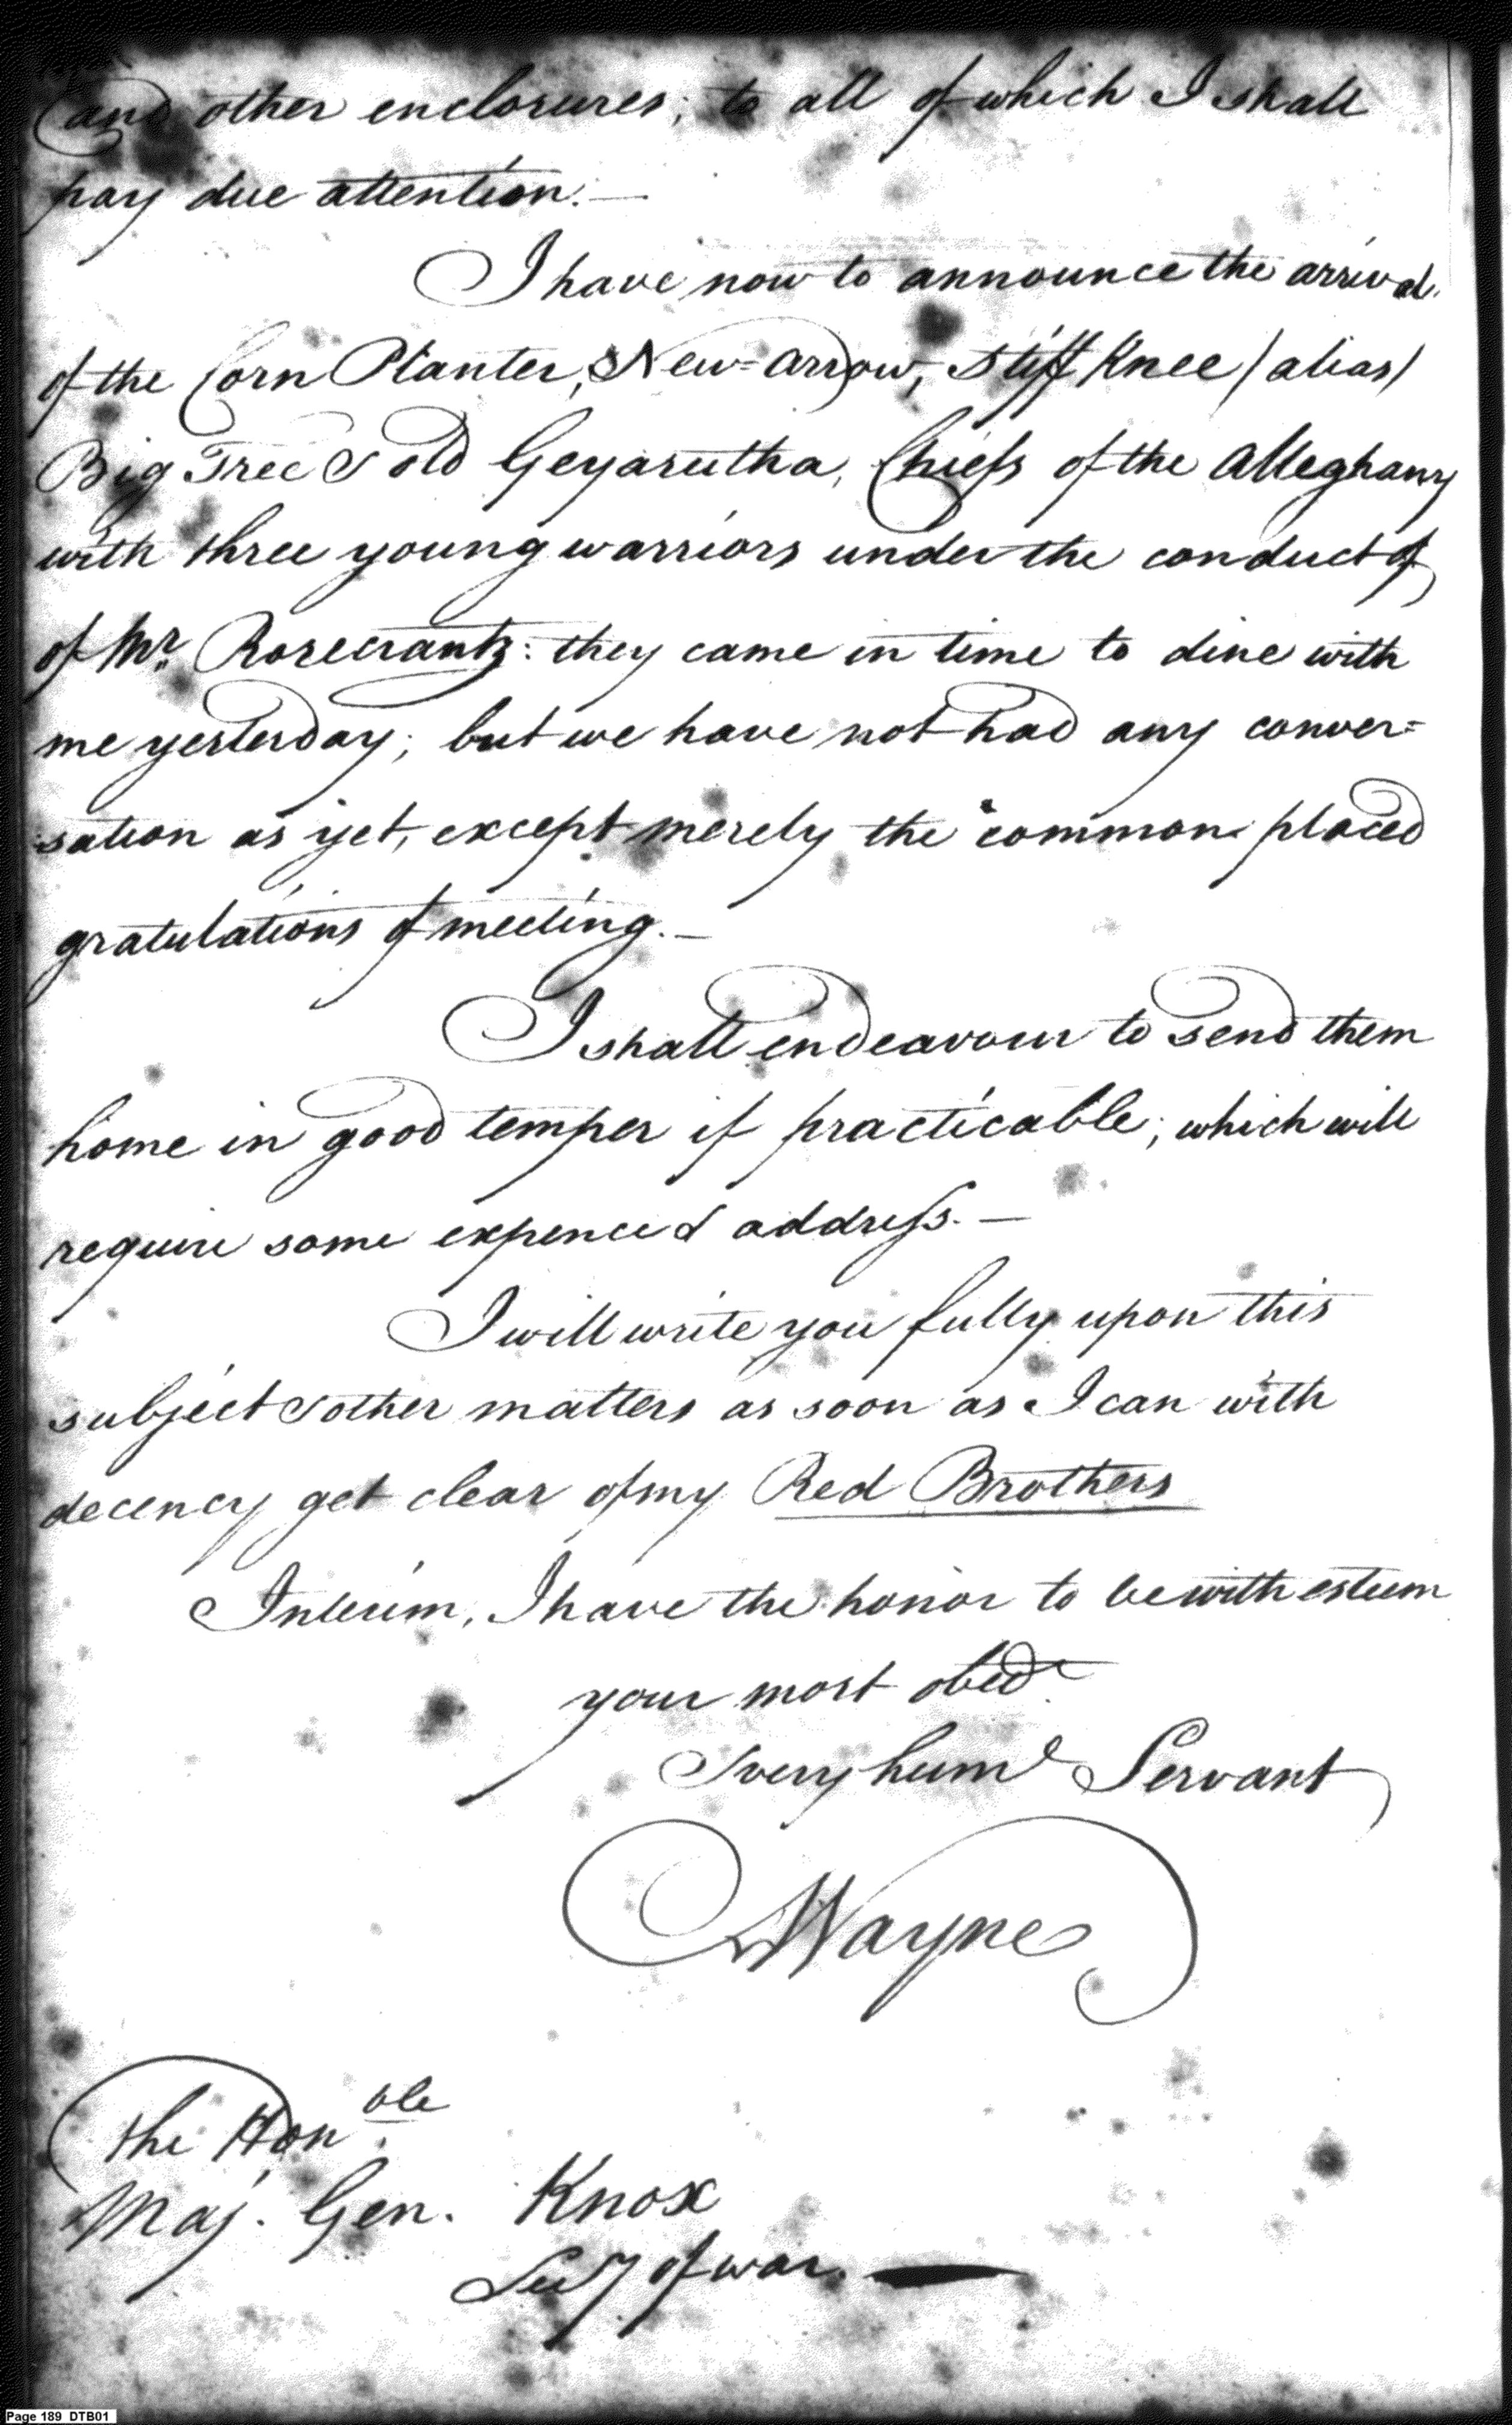 and other enclosures; to all of which I shall
pay due attention. —
I have now to announce the arrival
of the Corn Planter, New=arrow, Stiff Knee /alias/
Big Tree & old Geyasutha, Chiefs of the Alleghany
with three young warriors under the conduct of
of Mr. Rosecrantz: they came in time to dine with
me yesterday; but we have not had any conver=
sation as yet, except merely the common placed
gratulations of meeting. —
I shall endeavour to send them
home in good temper if practicable; which will
require some expence & address. —
I will write you fully upon this
subject & other matters as soon as I can with
decency get clear of my Red Brothers
Interim, I have the honor to be with esteem
your most obedt.
& very humle Servant
Wayne
The Honble
Maj. Gen. Knox
Secy of war. —
Page 189 DTB01